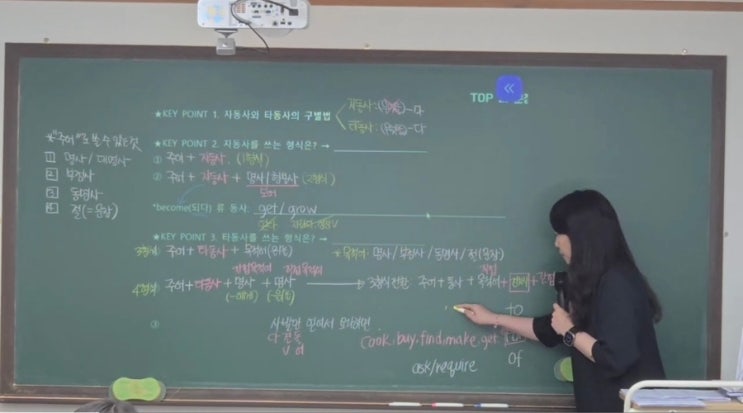 TOP
★KEY POINT 1. 자동사와 타동사의 구별법
자동사 : ~다
타동사 : (무엇을)~다
★"주어"로 쓸 수 있는 것
1 명사 / 대명사
2 부정사
3 동명사
4 절(=문장)
★KEY POINT 2. 자동사를 쓰는 형식은? →
① 주어 + 자동사. (1형식)
② 주어 + 자동사 + 명사/형용사 (2형식)
보어
*become(되다) 류 동사: get / grow
★KEY POINT 3. 타동사를 쓰는 형식은? →
3형식: 주어 + 타동사 + 목적어(을/를)
★목적어: 명사 / 부정사 / 동명사 / 절(문장)
간접목적어 직접목적어
4형식: 주어 + 타동사 + 명사 + 명사 → 3형식 전환: 주어 + 동사 + 목적어 + 전치사 + 간목
(~에게) (~을/를)
③
to
cook, buy, find, make, get
ask/require of